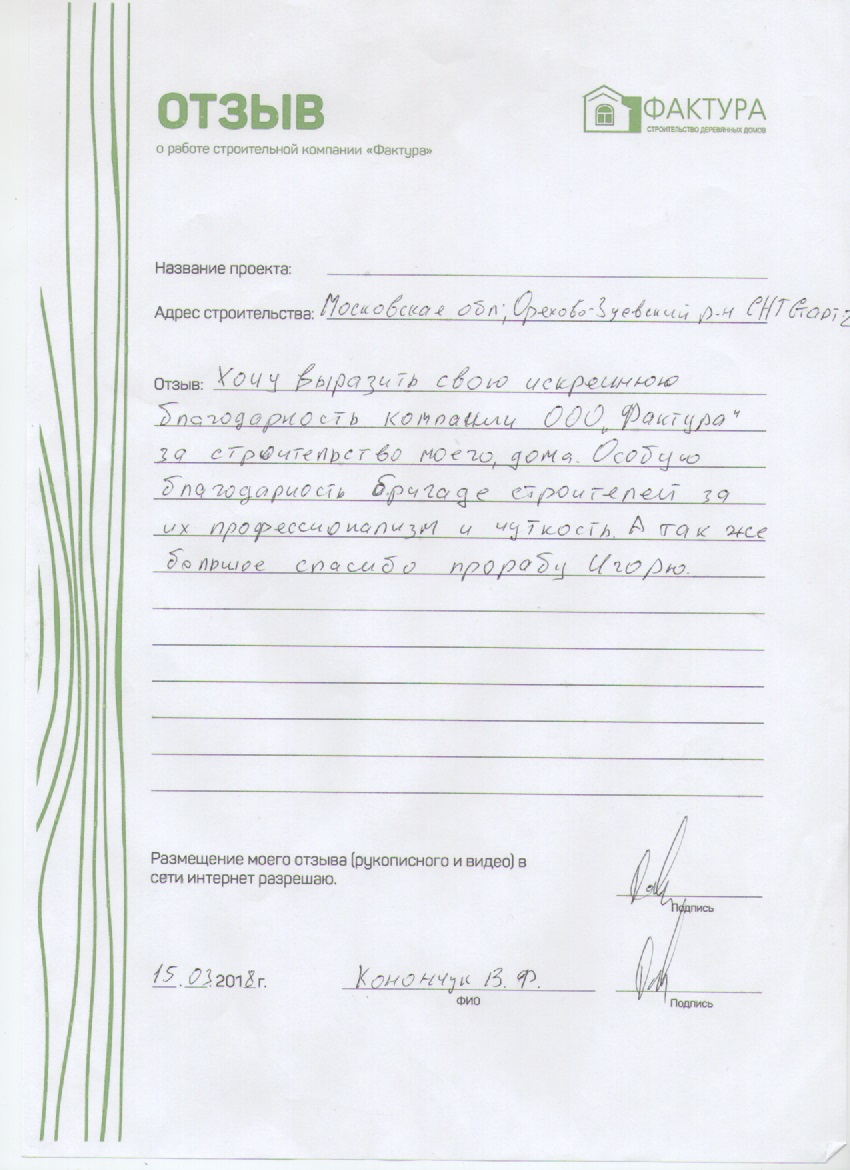 ОТЗЫВ
о работе строительной компании «Фактура»
ФАКТУРА
СТРОИТЕЛЬСТВО ДЕРЕВЯННЫХ ДОМОВ
Название проекта:
Адрес строительства: Московская обл; Орехово-Зуевский р-н СНТ Старт-2
Отзыв: Хочу выразить свою искреннюю
благодарность компании ООО „Фактура“
за строительство моего, дома. Особую
благодарность бригаде строителей за
их профессионализм и чуткость. А так же
большое спасибо прорабу Игорю.
Размещение моего отзыва (рукописного и видео) в
сети интернет разрешаю.
Подпись
15.03.2018г. Конончук В. Ф.
ФИО Подпись